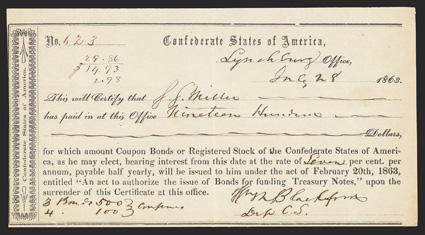 Confederate States of America.
No. 623
Confederate States of America,
29.86
$14.93
2.98
Lynchburg Office,
July 28 1863.
This will Certify that J. J. Miller
has paid in at this Office Nineteen Hundred
Dollars,
for which amount Coupon Bonds or Registered Stock of the Confederate States of Ameri-
ca, as he may elect, bearing interest from this date at the rate of Seven per cent. per
annum, payable half yearly, will be issued to him under the act of February 20th, 1863,
entitled "An act to authorize the issue of Bonds for funding Treasury Notes," upon the
surrender of this Certificate at this office.
3 Bonds 500 } Coupons
4 100
Wm. M. Blackford
Dep. C.S.